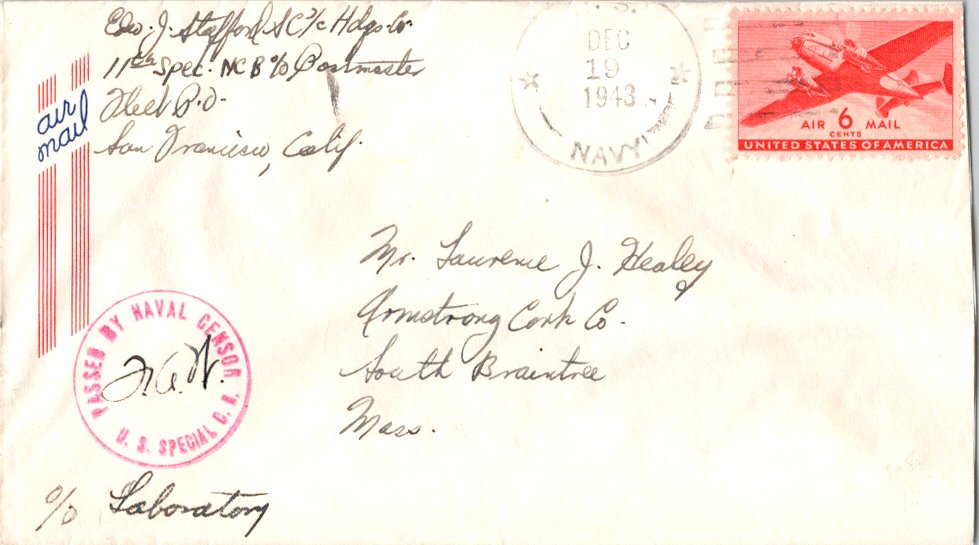 Edw. J. Stafford SC 3/c Hdqs. Co.
11th Spec. NCB c/o Postmaster
Fleet P.O.
San Francisco, Calif.
air
mail
U. S.
DEC
19
1943
NAVY
AIR 6 MAIL
CENTS
UNITED STATES OF AMERICA
Mr. Laurence J. Healey
Armstrong Cork Co.
South Braintree
Mass.
PASSED BY NAVAL CENSOR
U. S. SPECIAL C. B.
c/o Laboratory